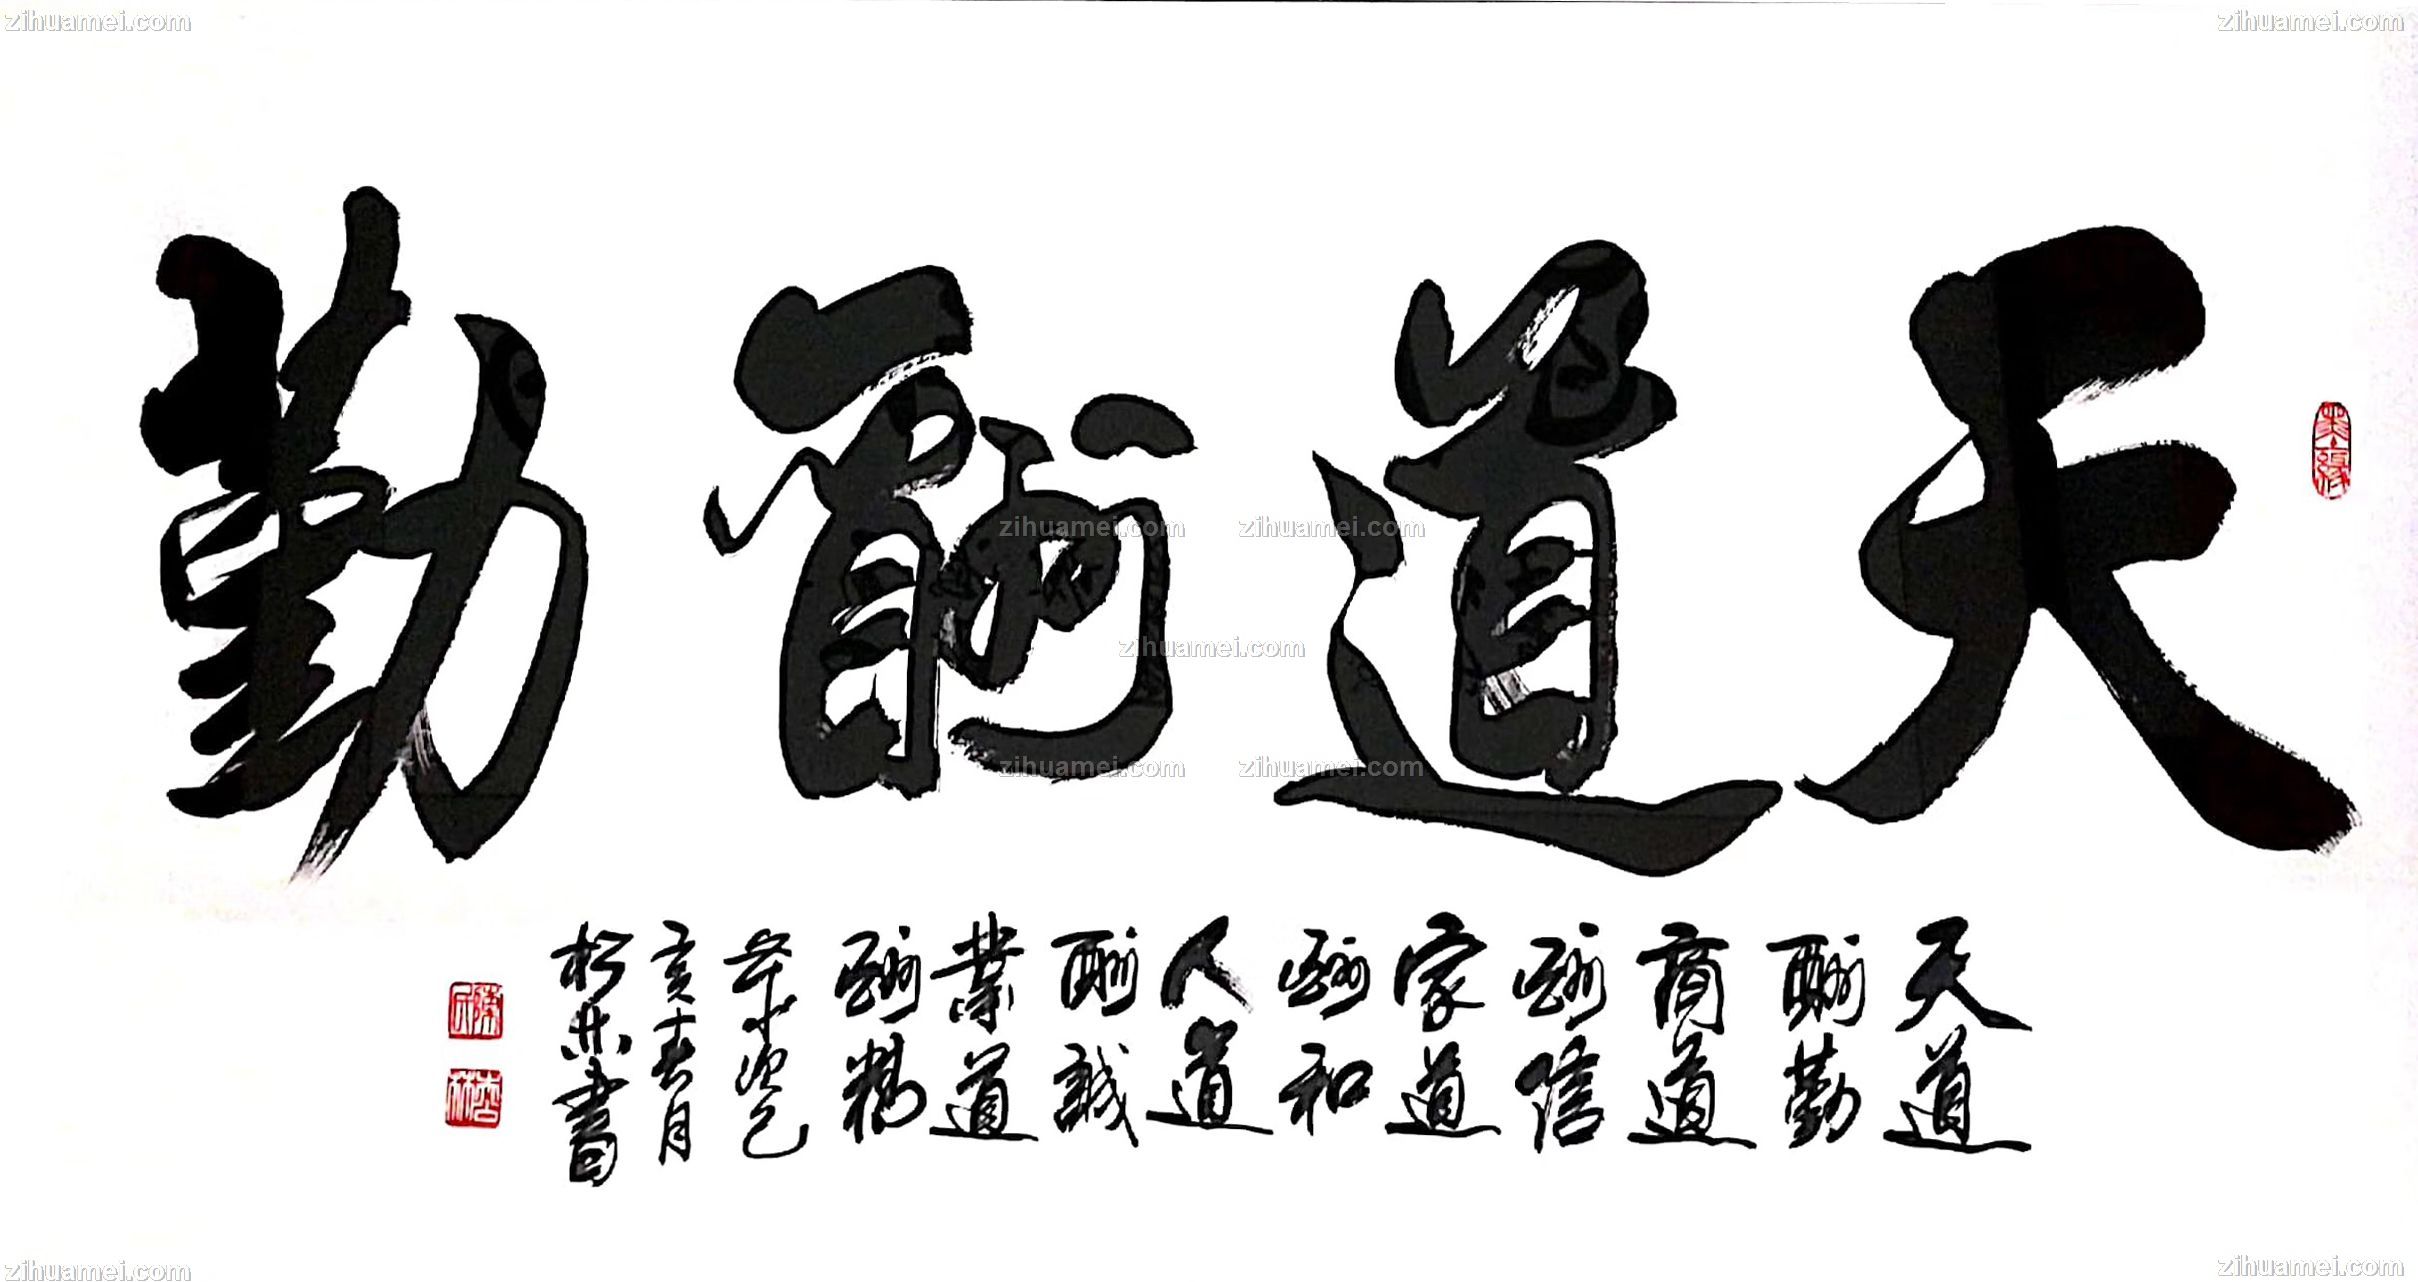 天道酬勤
天道
酬勤
商道
酬信
家道
酬和
人道
酬誠
業道
酬精
歲次己
亥春月
書
zihuamei.com
zihuamei.com
zihuamei.com
zihuamei.com
zihuamei.com
zihuamei.com
zihuamei.com
zihuamei.com
zihuamei.com